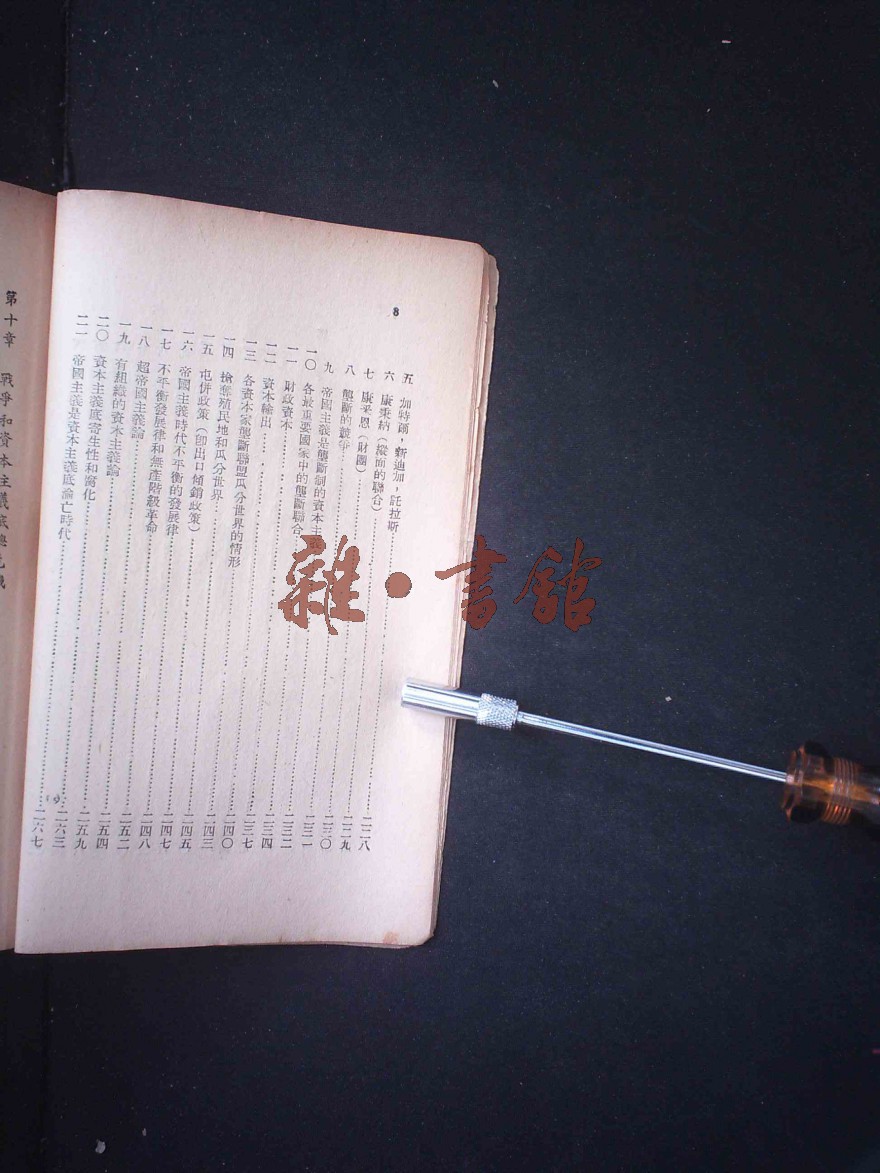 8
五 加特爾，新迪加，託拉斯
六 康秉納（縱面的聯合）
七 康采恩（財團）
八 壟斷的競爭
九 帝國主義是壟斷制的資本主義
一〇 各最重要國家中的壟斷聯合
一一 財政資本
一二 資本輸出
一三 各資本家壟斷聯盟瓜分世界的情形
一四 搶奪殖民地和瓜分世界
一五 屯併政策（卽出口傾銷政策）
一六 帝國主義時代不平衡的發展律
一七 不平衡發展律和無產階級革命
一八 超帝國主義論
一九 有組織的資本主義論
二〇 資本主義底寄生性和腐化
二一 帝國主義是資本主義底淪亡時代
二二八
二二九
二三〇
二三一
二三二
二三四
二三七
二四〇
二四三
二四五
二四七
二四八
二五二
二五四
二五九
二六三
二六七
第十章 戰爭和資本主義底總危機
雜·書館